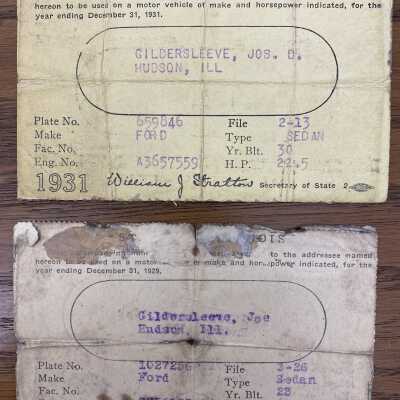 hereon to be used on a motor vehicle of make and horsepower indicated, for the
year ending December 31, 1931.
GILDERSLEEVE, JOS. D.
HUDSON, ILL
Plate No. 659846 File 2-13
Make FORD Type SEDAN
Fac. No. Yr. Blt. 30
Eng. No. A3657559 H. P. 22.5
1931 William J Stratton Secretary of State 2
OIS
to the addressee named
hereon to be used on a motor vehicle of make and horsepower indicated, for the
year ending December 31, 1929.
Gildersleeve, Joe
Hudson, Ill.
Plate No. 1027256 File 3-26
Make Ford Type Sedan
Fac. No. Yr. Blt. 28